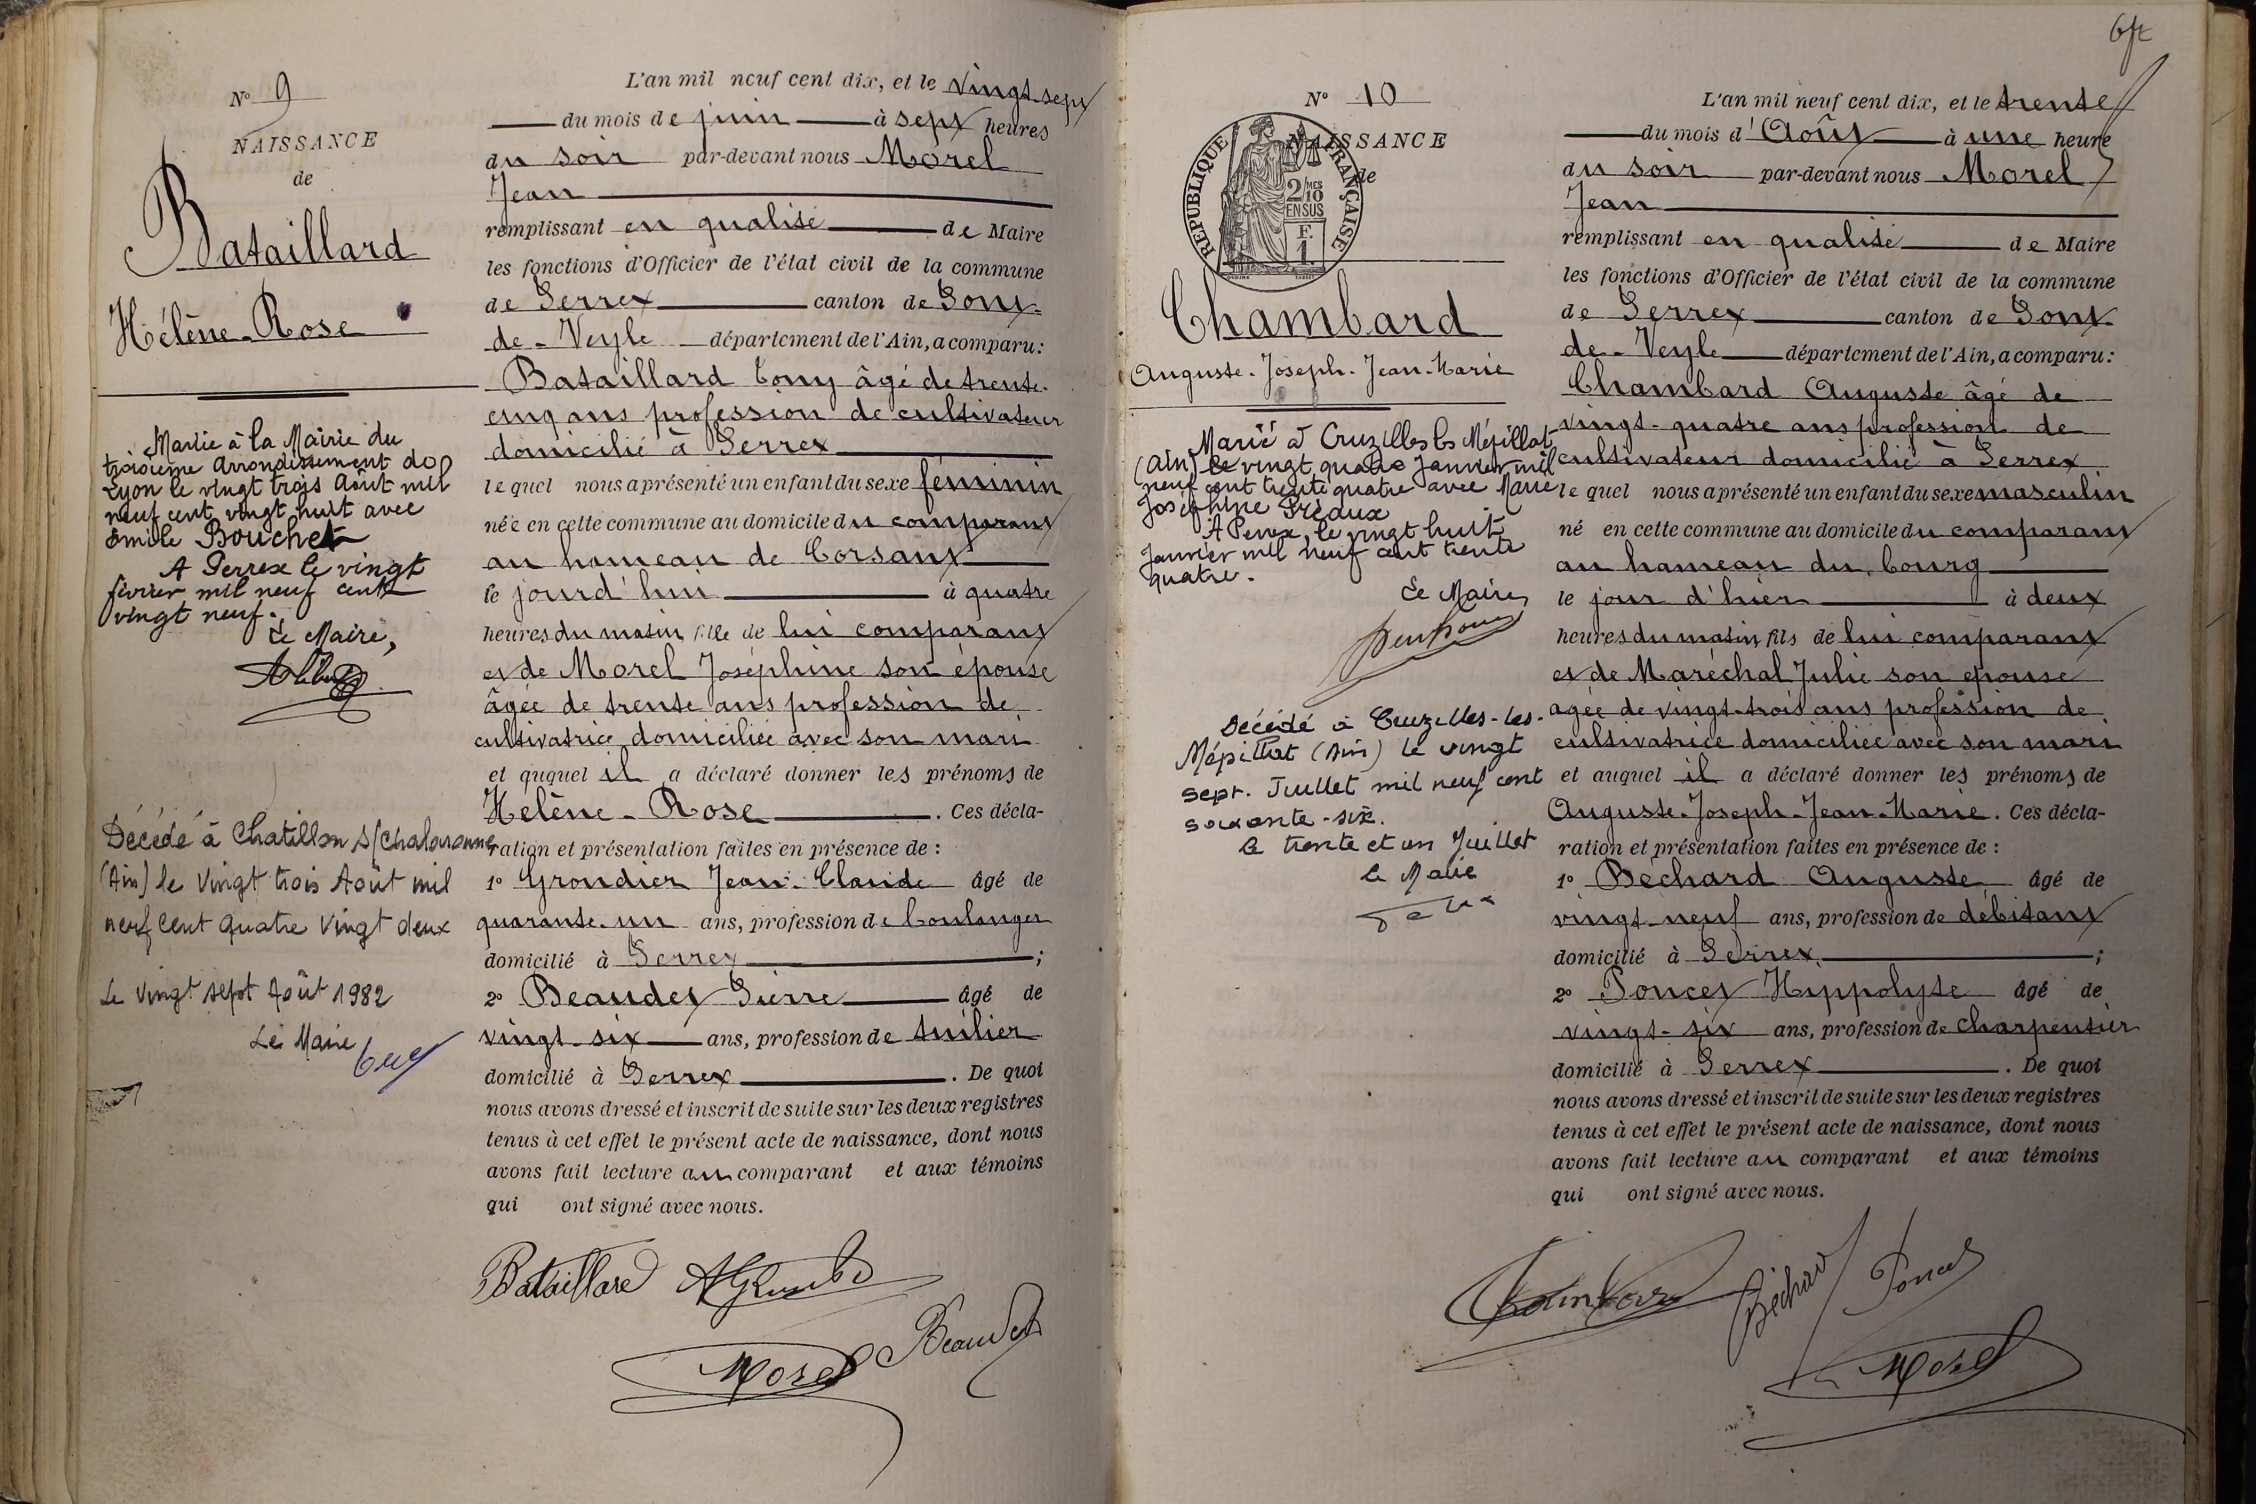 N° 9
NAISSANCE
de
Bataillard
Hélène-Rose
Mariée à la Mairie du
troisième arrondissement de
Lyon le vingt trois Août mil
neuf cent vingt huit avec
Emile Bouchet
A Perrex le vingt
février mil neuf cent
vingt neuf.
Le Maire,
Décédé à Chatillon s/Chalaronne
(Ain) le Vingt trois Août mil
neuf cent quatre Vingt deux
Le Vingt sept Août 1982
Le Maire
L'an mil neuf cent dix, et le vingt-sept
du mois de juin à sept heures
du soir par-devant nous Morel
Jean
remplissant en qualité de Maire
les fonctions d'Officier de l'état civil de la commune
de Perrex canton de Pont-
de-Veyle département de l'Ain, a comparu:
Bataillard Tony âgé de trente-
cinq ans profession de cultivateur
domicilié à Perrex
lequel nous a présenté un enfant du sexe féminin
née en cette commune au domicile du comparant
au hameau de Corsant
le jourd'hui à quatre
heures du matin, fille de lui comparant
et de Morel Joséphine son épouse
âgée de trente ans profession de
cultivatrice domiciliée avec son mari
et auquel il a déclaré donner les prénoms de
Helène-Rose. Ces décla-
ration et présentation faites en présence de :
1° Grondier Jean-Claude âgé de
quarante-un ans, profession de boulanger
domicilié à Perrex ;
2° Beaudet Pierre âgé de
vingt-six ans, profession de tuilier
domicilié à Perrex. De quoi
nous avons dressé et inscrit de suite sur les deux registres
tenus à cet effet le présent acte de naissance, dont nous
avons fait lecture au comparant et aux témoins
qui ont signé avec nous.
Bataillard
Beaudet
Morel
N° 10
NAISSANCE
de
RÉPUBLIQUE FRANÇAISE
2/10 MES
EN SUS
F.
1.
Chambard
Auguste-Joseph-Jean-Marie
Marié à Cruzilles les Mépillat
(Ain) le vingt quatre Janvier mil
neuf cent trente quatre avec Marie
Joséphine Préaux
A Perrex, le vingt huit
Janvier mil neuf cent trente
quatre.
Le Maire,
Décédé à Cruzilles-les-
Mépillat (Ain) le vingt
sept Juillet mil neuf cent
soixante-six.
le trente et un Juillet
le Maire
L'an mil neuf cent dix, et le trente
du mois d'Août à une heure
du soir par-devant nous Morel
Jean
remplissant en qualité de Maire
les fonctions d'Officier de l'état civil de la commune
de Perrex canton de Pont-
de-Veyle département de l'Ain, a comparu:
Chambard Auguste âgé de
vingt-quatre ans profession de
cultivateur domicilié à Perrex
lequel nous a présenté un enfant du sexe masculin
né en cette commune au domicile du comparant
au hameau du bourg
le jour d'hier à deux
heures du matin, fils de lui comparant
et de Maréchal Julie son épouse
agée de vingt-trois ans profession de
cultivatrice domiciliée avec son mari
et auquel il a déclaré donner les prénoms de
Auguste-Joseph-Jean-Marie. Ces décla-
ration et présentation faites en présence de :
1° Bechard Auguste âgé de
vingt-neuf ans, profession de débitant
domicilié à Perrex ;
2° Poncet Hippolyte âgé de
vingt-six ans, profession de charpentier
domicilié à Perrex. De quoi
nous avons dressé et inscrit de suite sur les deux registres
tenus à cet effet le présent acte de naissance, dont nous
avons fait lecture au comparant et aux témoins
qui ont signé avec nous.
Chambard
Béchard
Poncet
Morel